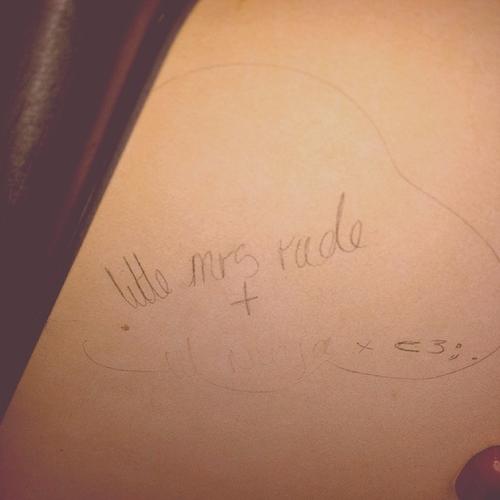 little mrs rude
+
x <3;.